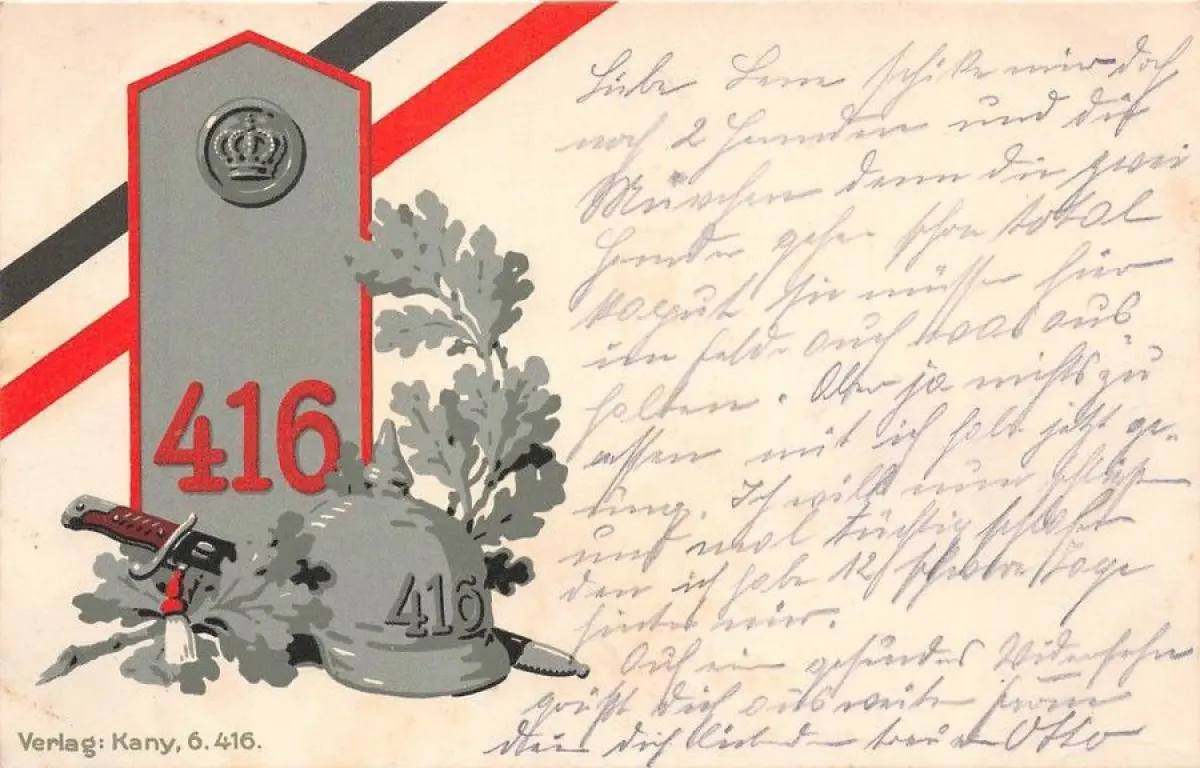 416
416
Verlag: Kany, 6. 416.
Liebe Lene schike mir doch
noch 2 Hemden und die
denn die zwei
Hemde gehen schon total
kaput sie müsse hir
im Felde auch was aus
halten. Aber ja nichts zu
essen mit ich hab jetzt ge-
nug. Ich will nun schließen
und mal tüchtig schlafe
den ich habe 12 schwere Tage
hinter mir.
Auf ein gesundes Widersehn
grüßt dich aus weiter Ferne
dein dich liebender treuer Otto